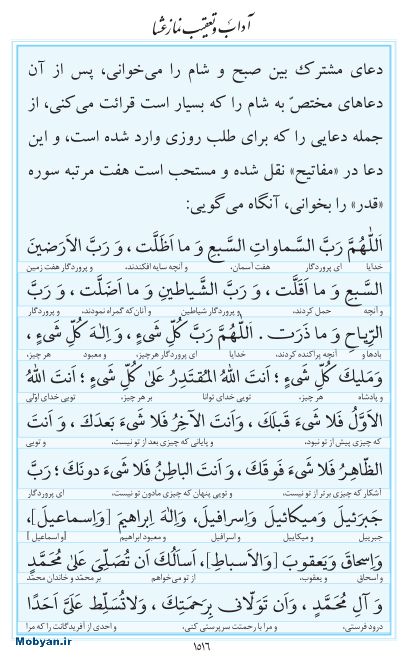 آداب و تعقیب نماز عشا
دعای مشترک بین صبح و شام را می‌خوانی، پس از آن
دعاهای مختصّ به شام را که بسیار است قرائت می‌کنی، از
جمله دعایی را که برای طلب روزی وارد شده است، و این
دعا در «مفاتیح» نقل شده و مستحب است هفت مرتبه سوره
«قدر» را بخوانی، آنگاه می‌گویی:
اَللّٰهُمَّ رَبَّ السَّماواتِ السَّبعِ وَ ما اَظَلَّت ، وَ رَبَّ الاَرَضینَ
خدایا ای پروردگار هفت آسمان، و آنچه سایه افکندند، و پروردگار هفت زمین
السَّبعِ وَ ما اَقَلَّت ، وَ رَبَّ الشَّیاطینِ وَ ما اَضَلَّت ، وَ رَبَّ
و آنچه حمل کردند، و پروردگار شیاطین و آنان که گمراه نمودند، و پروردگار
الرِّیاحِ وَ ما ذَرَت . اَللّٰهُمَّ رَبَّ کُلِّ شَیءٍ ، وَ اِلٰهَ کُلِّ شَیءٍ ،
بادها و آنچه پراکنده کردند، خدایا ای پروردگار هرچیز، و معبود هر چیز،
وَ مَلیکَ کُلِّ شَیءٍ ؛ اَنتَ اللّٰهُ المُقتَدِرُ عَلیٰ کُلِّ شَیءٍ ؛ اَنتَ اللّٰهُ
و پادشاه هر چیز، تویی خدای توانا بر هر چیز، تویی خدای اوّلی
الاَوَّلُ فَلا شَیءَ قَبلَکَ ، وَ اَنتَ الآخِرُ فَلا شَیءَ بَعدَکَ ، وَ اَنتَ
که چیزی پیش از تو نبود، و پایانی که چیزی بعد از تو نیست، و تویی
الظّاهِرُ فَلا شَیءَ فَوقَکَ ، وَ اَنتَ الباطِنُ فَلا شَیءَ دونَکَ ؛ رَبَّ
آشکار که چیزی برتر از تو نیست، و تویی پنهان که چیزی مادون تو نیست، ای پروردگار
جَبرَئیلَ وَ میکائیلَ وَ اِسرافیلَ، وَ اِلٰهَ اِبراهیمَ [وَ اِسماعیلَ]،
جبرییل و میکاییل و اسرافیل، و معبود ابراهیم [و اسماعیل ]
وَ اِسحاقَ وَ یَعقوبَ [وَ الاَسباطِ]، اَسأَلُکَ اَن تُصَلِّیَ عَلیٰ مُحَمَّدٍ
و اسحاق و یعقوب، از تو می‌خواهم بر محمّد و خاندان محمّد
وَ آلِ مُحَمَّدٍ ، وَ اَن تَوَلّانی بِرَحمَتِکَ ، وَ لا تُسَلِّط عَلَیَّ اَحَدًا
درود فرستی، و مرا با رحمتت سرپرستی کنی، و احدی از آفریدگانت را که مرا
۱۵۱۶
Mobyan.ir